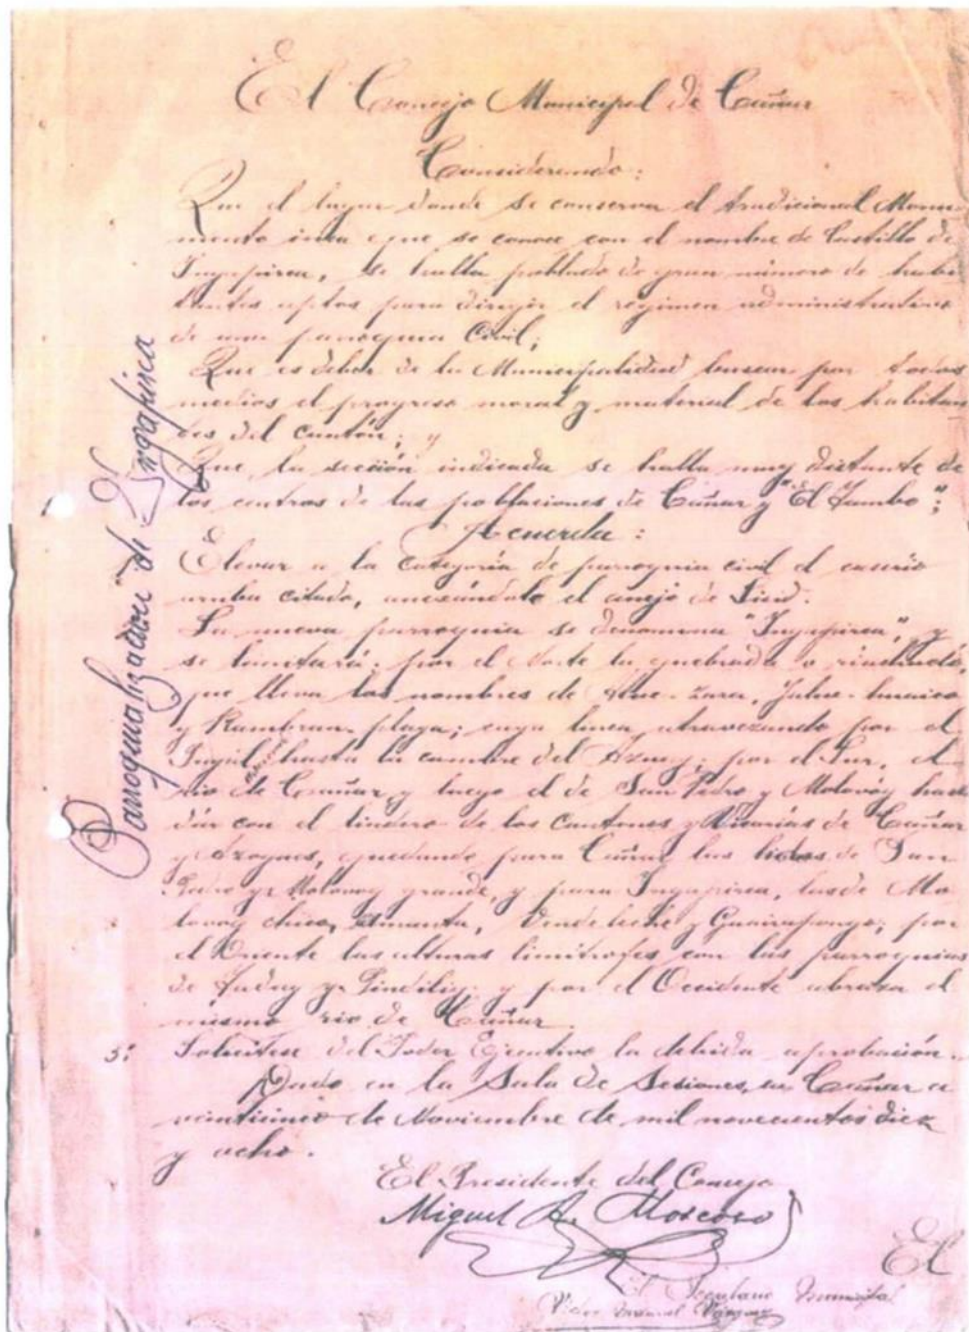 El Concejo Municipal de Cañar
Considerando:
Que el lugar donde se conserva el tradicional Monu-
mento inca que se conoce con el nombre de Castillo de
Ingapirca, se halla poblado de gran número de habi
tantes aptos para dirigir el régimen administrativo
de una parroquia Civil;
Que es deber de la Municipalidad buscar por todos
medios el progreso moral y material de los habitan
tes del cantón; y
Que la sección indicada se halla muy distante de
los centros de las poblaciones de Cañar y "El Tambo";
Acuerda:
Elevar a la categoría de parroquia civil el caserío
arriba citado, anexándole el anejo de Sisid.
La nueva parroquia se denomina "Ingapirca", y
se limitará: por el Norte la quebrada o riachuelo,
que lleva los nombres de
y playa; cuya línea atravezando por el
hasta la cumbre del Azuay; por el Sur, el
río de Cañar, y luego el de San Pedro y Molovóg hasta
dar con el lindero de los Cantones y Vicarías de Cañar
y Azogues, quedando para Cañar las de San
Pedro y Molovog grande, y para Ingapirca, las de Mo
lovog chico, Vende leche y Guairapungo; por
el Oriente las alturas limítrofes con las parroquias
de Juday y Pindilig; y por el Occidente abraza el
mismo río de Cañar.
3º Solicítese del Poder Ejecutivo la debida aprobación.
Dado en la Sala de Sesiones, en Cañar a
veinticinco de Noviembre de mil novecientos diez
y ocho.
El Presidente del Concejo
Miguel A. Moscoso
El
El Secretario Municipal
Manuel Vázquez
Parroquialización de Ingapirca